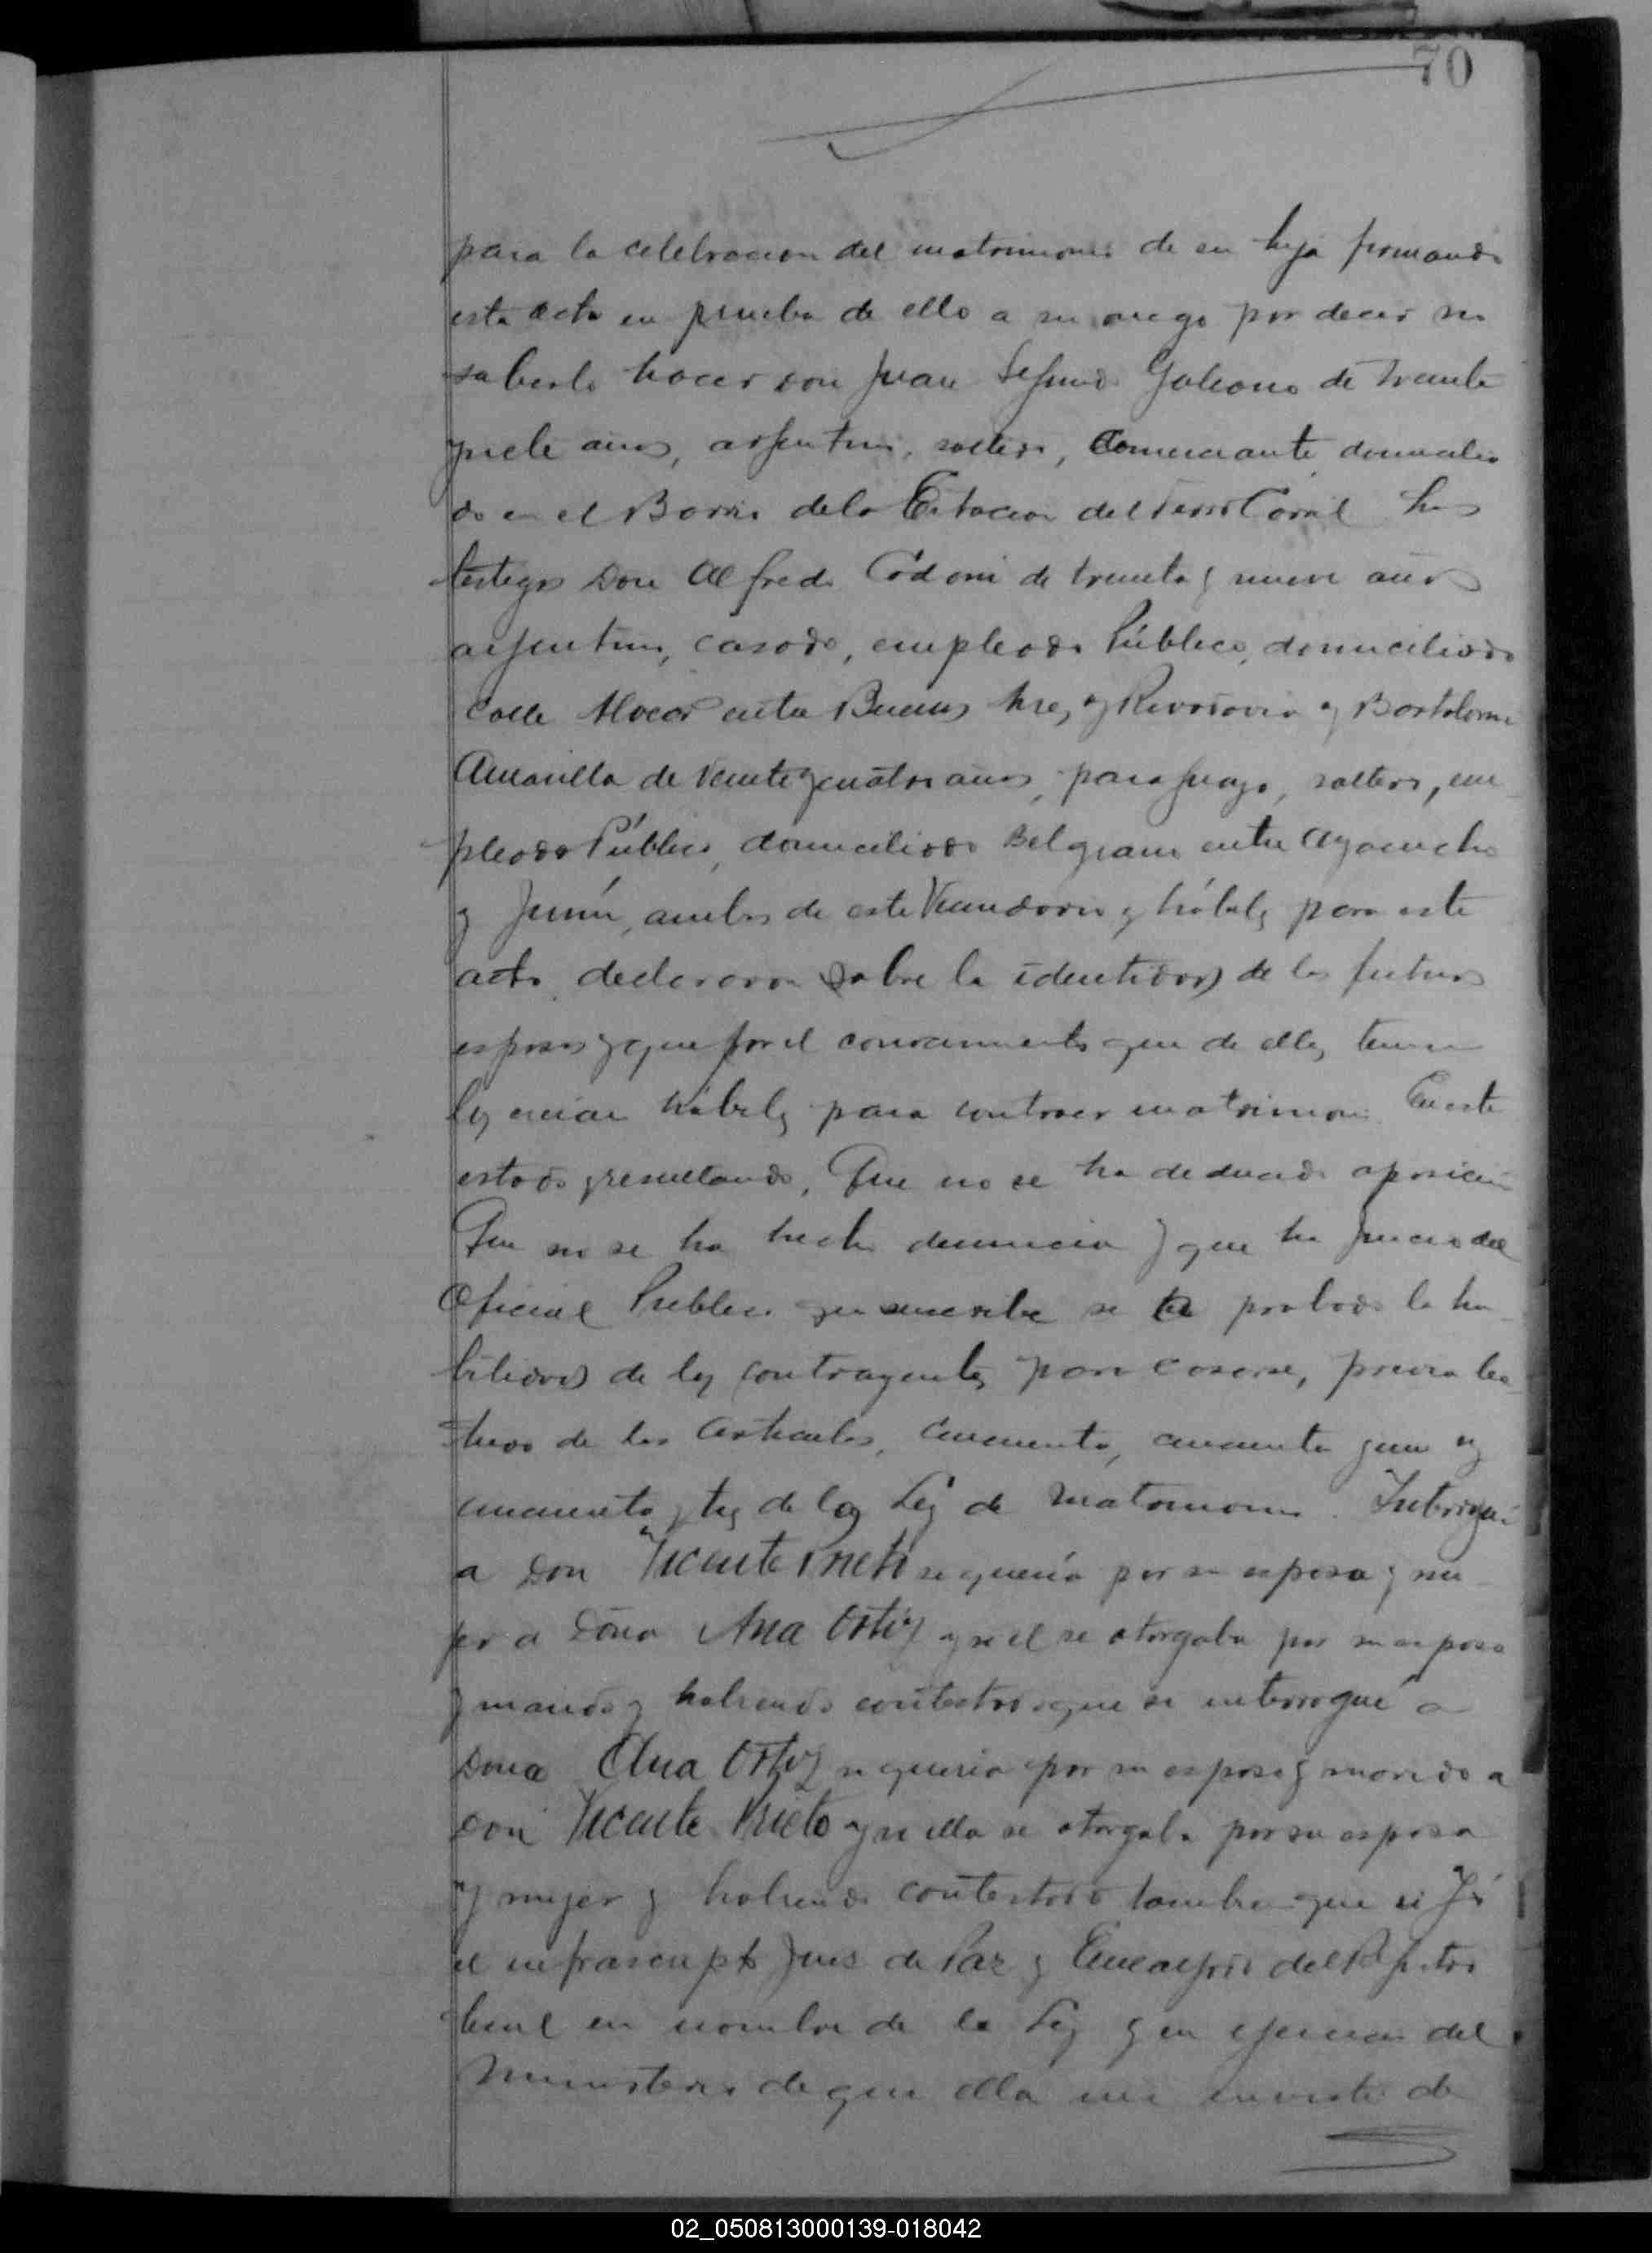 70
para la celebracion del matrimonio de su hija firmando
esta acta en prueba de ello a su ruego por decir no
saberlo hacer don Juan Segundo Galeano de treinta
y siete años, argentino, soltero, Comerciante domicilia
do en el Barrio de la Estacion del Ferro Carril Los
testigos Don Alfredo Codoni de treinta y nueve años
argentino, casado, empleado Público, domiciliado
calle entre Buenos Ayres y Rivadavia y Bartolome
Amarilla de veinte y cuatro años, paraguayo, soltero, em
pleado Público, domiciliado Belgrano entre Ayacucho
y Junín, ambos de este Vecindario y hábiles para este
acto, declararon sobre la identidad de los futuros
esposos y que por el conocimiento que de ellos tienen
los creian hábiles para contraer matrimonio En este
estado y resultando, Que no se ha deducido oposicion
Que no se ha hecho denuncia y que ha juicio del
Oficial Publico que suscribe se ha probado la ha
bilidad de los contrayentes para casarse, previa lec
tura de los articulos, cincuenta, cincuenta y uno y
cincuenta y tres de la Ley de Matrimonio. Interrogué
a Don Vicente Prieto si queria por su esposa y mu
jer a Doña Ana Ortiz y si el se otorgaba por su esposo
y marido y habiendo contestado que si interrogué a
Dona Ana Ortiz si queria por su esposo y marido a
Don Vicente Prieto y si ella se otorgaba por su esposa
y mujer y habiendo contestado tambien que si Yo
el infrascripto Juez de Paz y Encargado del Registro
Civil en nombre de la Ley y en ejercicio del
Ministerio de que ella me inviste de
02_050813000139-018042